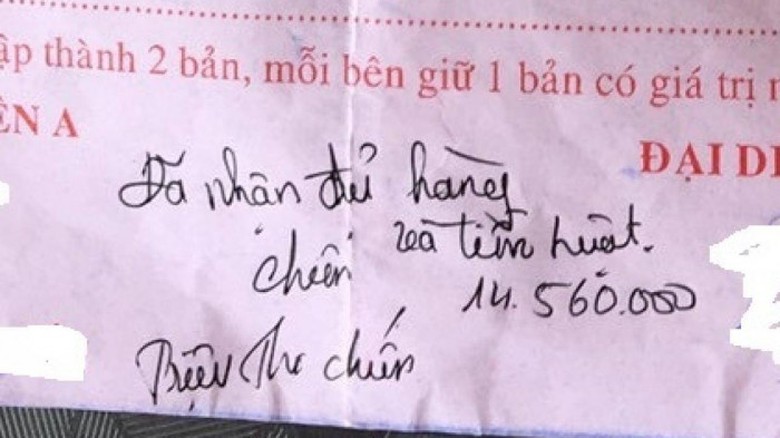 ập thành 2 bản, mỗi bên giữ 1 bản có giá trị n
ÊN A
ĐẠI DI
Đã nhận đủ hàng
và tiền
14.560.000
Chiến
Thế Chiến